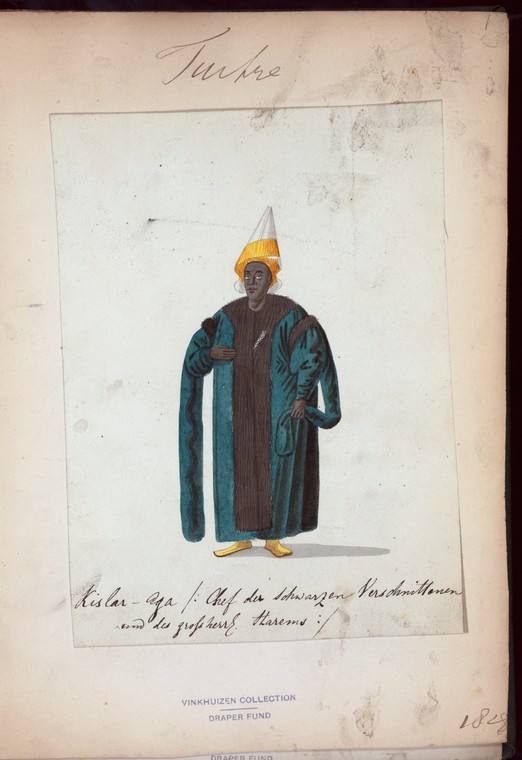 Turkre
Kislar-Aga /: Chef der schwarzen Verschnittenen
und des großherrl. Harems :/
VINKHUIZEN COLLECTION
DRAPER FUND
1828
DRAPER FUND